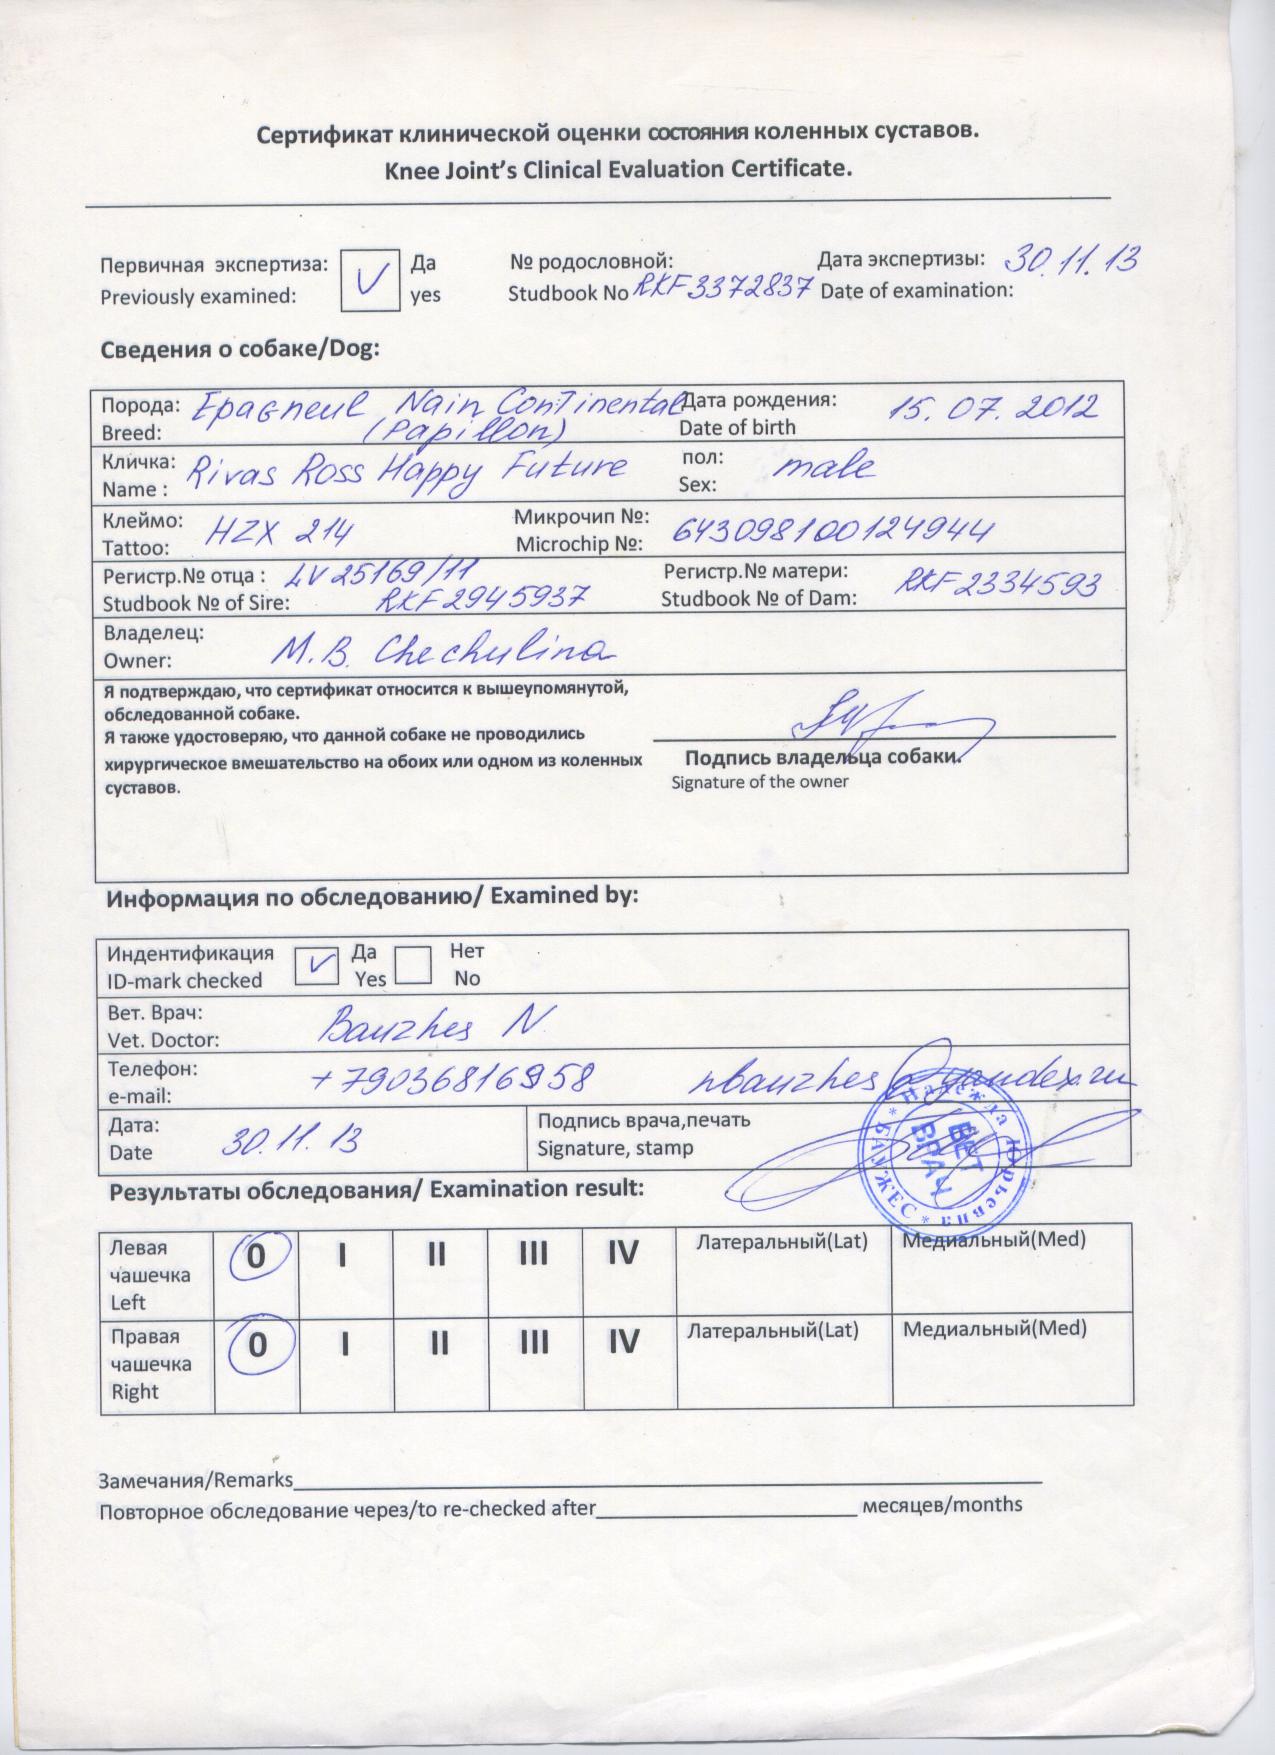 Сертификат клинической оценки состояния коленных суставов.
Knee Joint's Clinical Evaluation Certificate.
Первичная экспертиза: V Да № родословной: Дата экспертизы: 30.11.13
Previously examined: yes Studbook No RKF3372837 Date of examination:
Сведения о собаке/Dog:
Порода: Epagneul Nain Continental Дата рождения: 15.07.2012
Breed: (Papillon) Date of birth
Кличка: Rivas Ross Happy Future пол: male
Name : Sex:
Клеймо: HZX 214 Микрочип №: 643098100124944
Tattoo: Microchip №:
Регистр.№ отца : LV 25169/11 Регистр.№ матери: RKF2334593
Studbook № of Sire: RKF2945937 Studbook № of Dam:
Владелец:
Owner: M.B. Chechulina
Я подтверждаю, что сертификат относится к вышеупомянутой,
обследованной собаке.
Я также удостоверяю, что данной собаке не проводились
хирургическое вмешательство на обоих или одном из коленных
суставов.
Подпись владельца собаки.
Signature of the owner
Информация по обследованию/ Examined by:
Индентификация V Да Нет
ID-mark checked Yes No
Вет. Врач: Bauzhes N.
Vet. Doctor:
Телефон: +79036816958 nbauzhes@yandex.ru
e-mail:
Дата: 30.11.13 Подпись врача,печать
Date Signature, stamp
* Надежда Юрьевна * БАУЖЕС
ВЕТ
ВРАЧ
Результаты обследования/ Examination result:
Левая 0 I II III IV Латеральный(Lat) Медиальный(Med)
чашечка
Left
Правая 0 I II III IV Латеральный(Lat) Медиальный(Med)
чашечка
Right
Замечания/Remarks
Повторное обследование через/to re-checked after месяцев/months